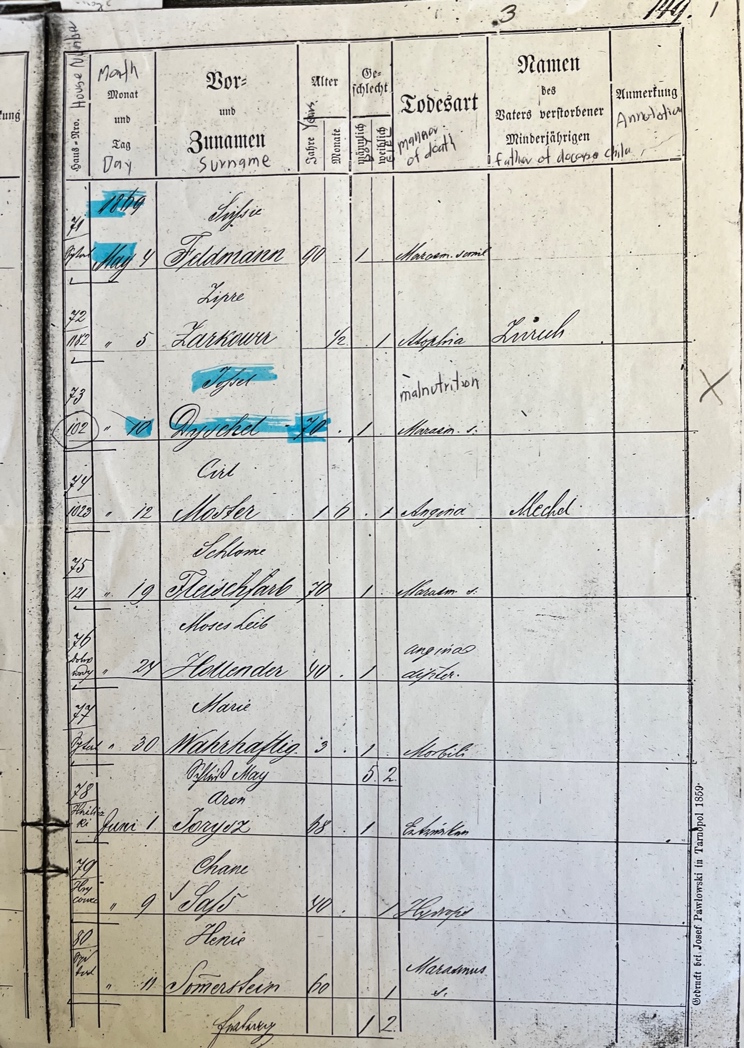 .3 149. 1
House Number Haus-Nro.
Month Monat und Tag Day
Vor- und Zunamen Surname
Alter Jahre Years Monate
Geschlecht männlich weiblich
Todesart manner of death
Namen des Vaters verstorbener Minderjährigen father of
Anmerkung Annotation
1869
71
May 4 Feldmann 90 1 Marasm.
72 Zipre
1182 " 5 Zarkower ½ 1 Atophia
73 malnutrition
102 " 10 Dyschel 70 1 Marasm. s. X
74 Cirl
1023 " 12 Moster 1 6 1 Angina Mechel
75 Schlome
121 " 19 Fleischfarb 70 1 Marasm s.
76 Moses Leib
" 24 Hollender 40 1 angina
77 Marie
" 30 Wahrhaftig 3 1 Morbili
May 5 2
78 Aron
Juni 1 Torysz 68 1
79 Chane
" 9 Saß 40 1 Hydrops
80 Henie
" 11 Somerstein 60 1 Marasmus s.
1 2
Gedruckt bei Josef Pawłowski in Tarnopol 1859.